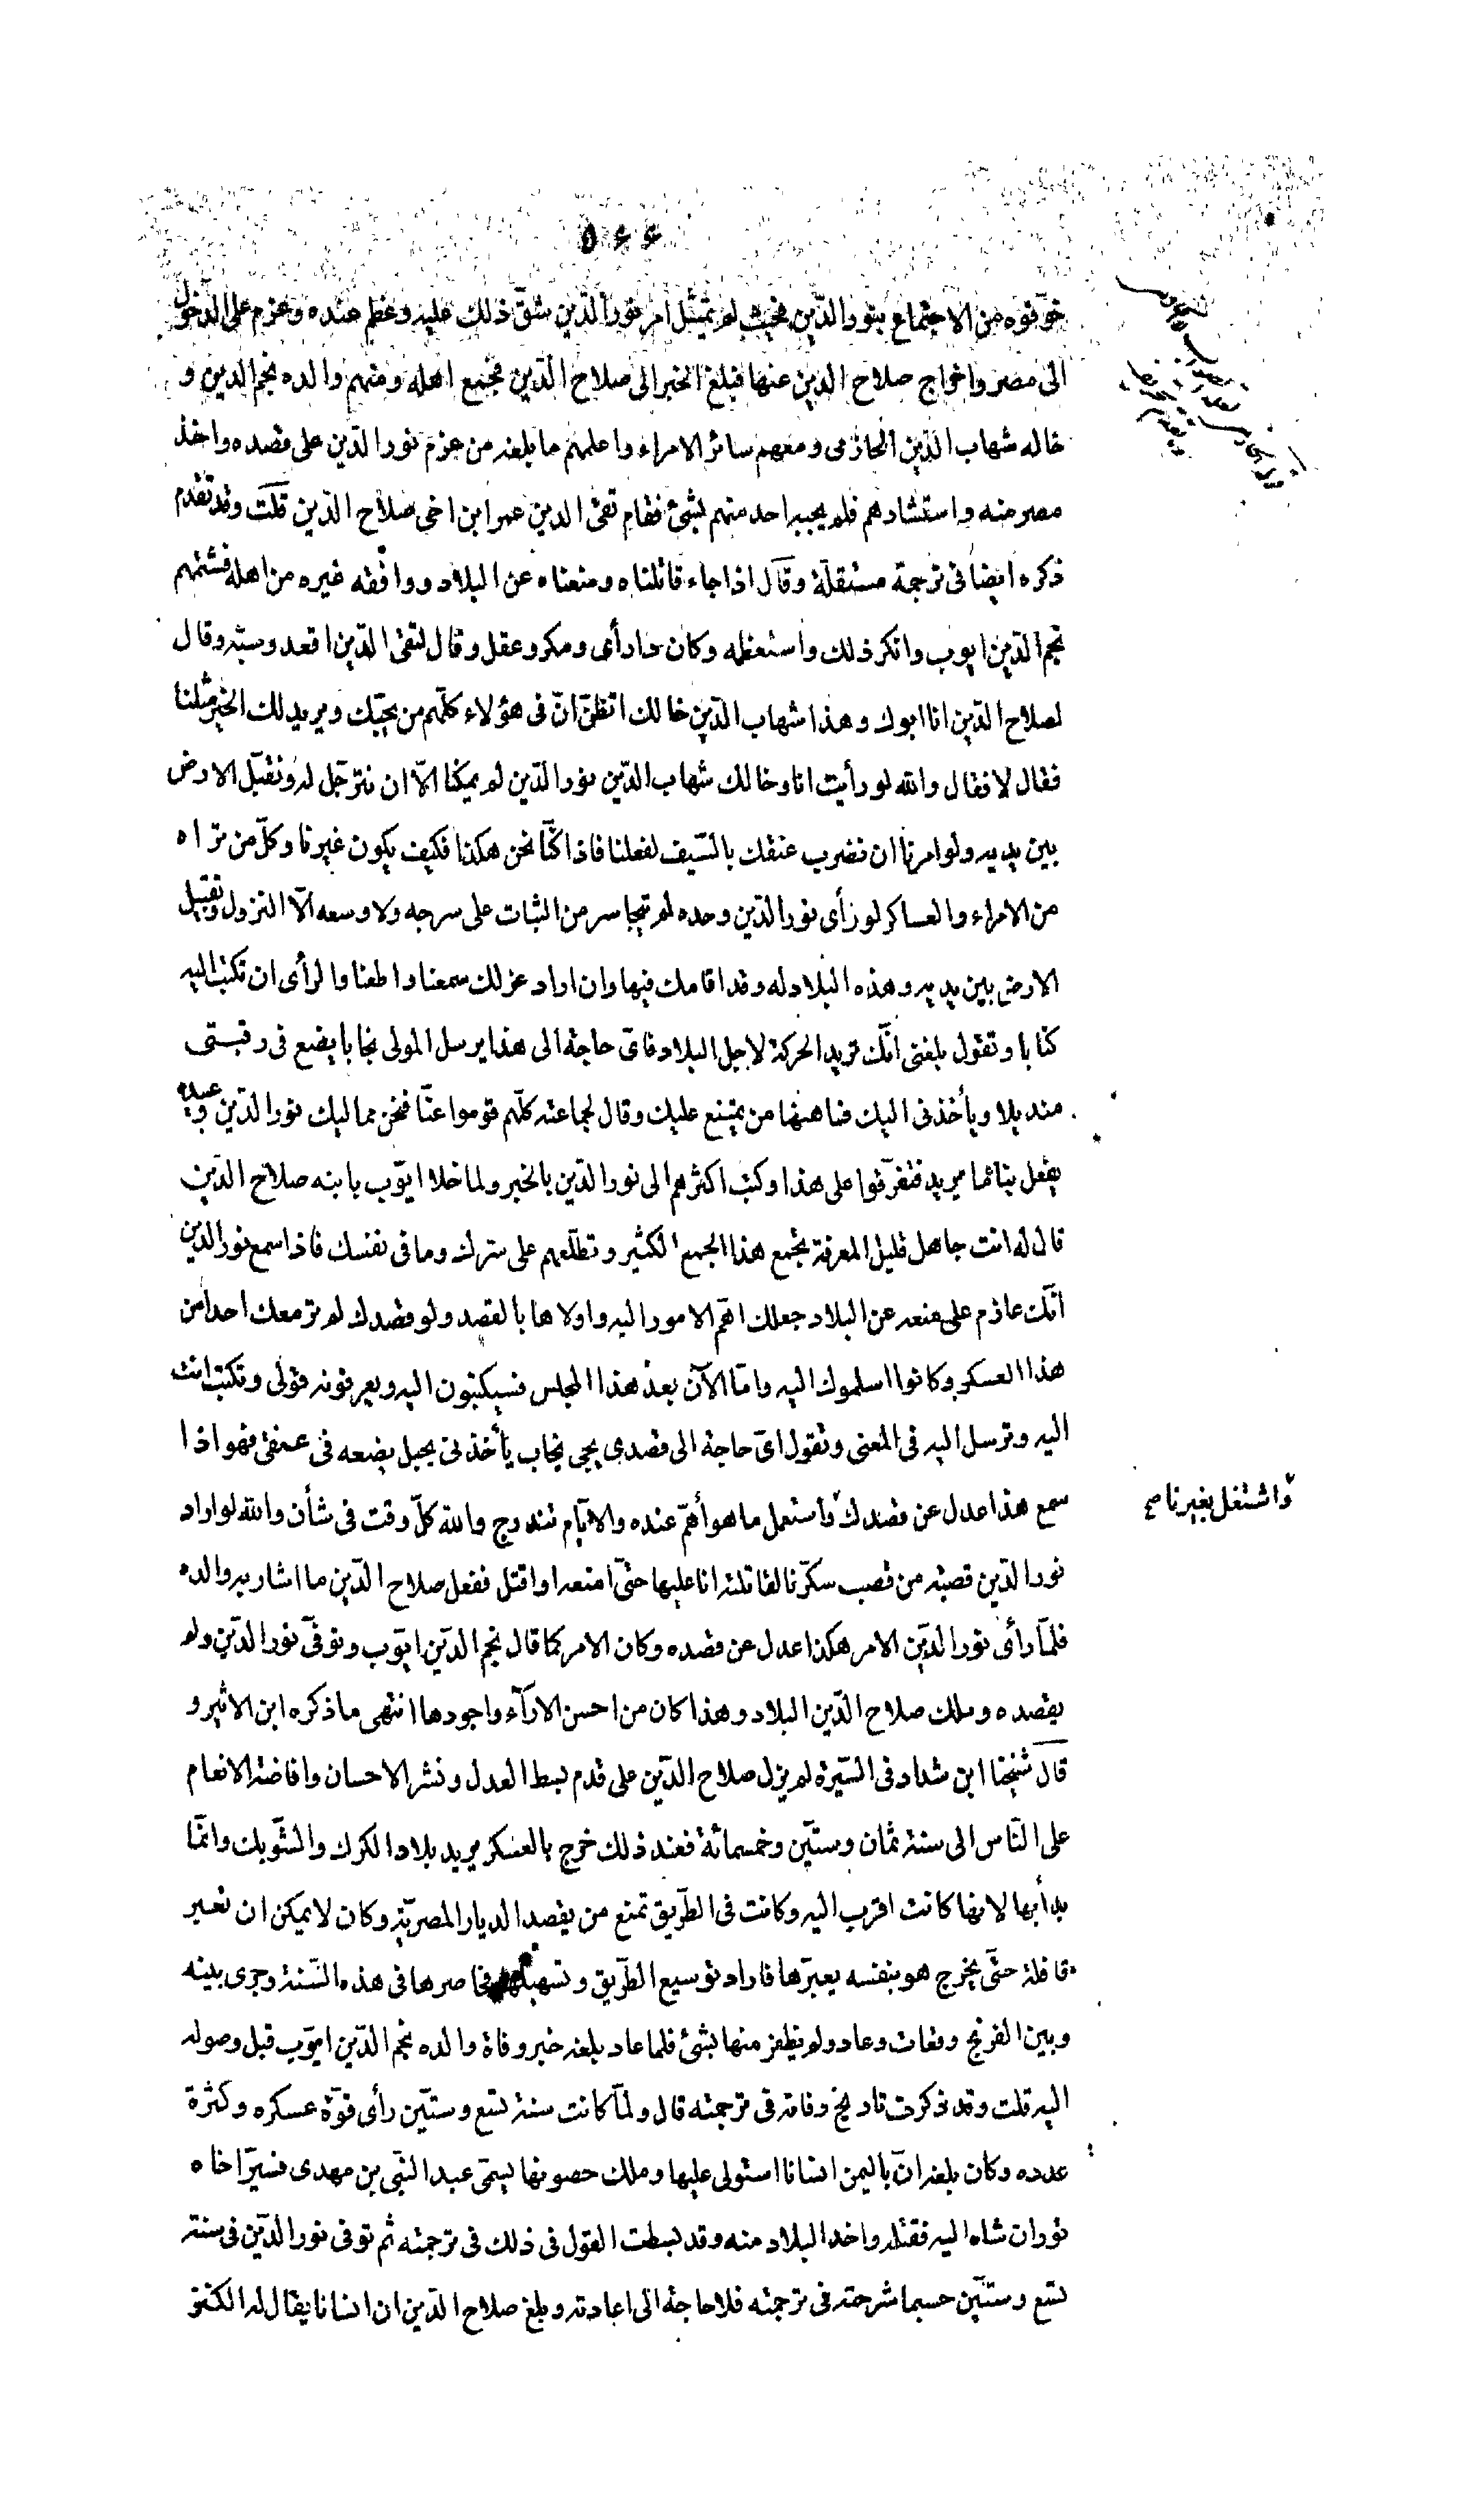 ٥٤٤
خوّفوه من الاجتماع بنور الدّين فحيث لم يمتثل امر نور الدّين شقّ ذلك عليه وعظم عنده وعزم على الدخول
الى مصر واخراج صلاح الدين عنها فبلغ الخبر الى صلاح الدّين فجمع اهله ومنهم والده نجم الدين و
خاله شهاب الدّين الحازمى ومعهم سائر الامراء واعلمهم ما بلغه من عزم نور الدّين على قصده واخذ
مصر منه واستشارهم فلم يجبه احد منهم بشئ فقام تقى الدين عمر ابن اخى صلاح الدّين قلت وقد تقدم
ذكره ايضا فى ترجمة مستقلّة وقال اذا جاء قاتلناه ومنعناه عن البلاد ووافقه غيره من اهله فشتمهم
نجم الدّين ايوب وانكر ذلك واستعظمه وكان ذا رأى ومكر وعقل وقال لتقى الدّين اقعد وسبّه وقال
لصلاح الدّين انا ابوك وهذا شهاب الدّين خالك اتظنّ انّ فى هؤلاء كلّهم من يحبّك ويريد لك الخير مثلنا
فقال لا فقال والله لو رأيت انا وخالك شهاب الدّين نور الدّين لم يمكنا الّا ان نترجّل له ونقبّل الارض
بين يديه ولو امرنا ان نضرب عنقك بالسّيف لفعلنا فاذا كنّا نحن هكذا فكيف يكون غيرنا وكلّ من تراه
من الامراء والعساكر لو رأى نور الدّين وحده لم يتجاسر من الثبات على سرجه ولا وسعه الّا النزول وتقبيل
الارض بين يديه وهذه البلاد له وقد اقامك فيها وان اراد عزلك سمعنا واطعنا والرأى ان تكتب اليه
كتابا وتقول بلغنى انّك تريد الحركة لاجل البلاد فاىّ حاجة الى هذا يرسل المولى نجابا يضع فى رقبتى
منديلا ويأخذنى اليك فما ههنا من يمتنع عليك وقال لجماعته كلّهم قوموا عنّا فنحن مماليك نور الدّين وعبيده
يفعل بنا ما يريد فتفرّقوا على هذا وكتب اكثرهم الى نور الدّين بالخبر ولما خلا ايّوب بابنه صلاح الدّين
قال له انت جاهل قليل المعرفة تجمع هذا الجمع الكثير وتطلعهم على سّرك وما فى نفسك فاذا سمع نور الدين
انّك عازم على منعه عن البلاد جعلك اهمّ الامور اليه واولاها بالقصد ولو قصدك لم تر معك احدا من
هذا العسكر وكانوا اسلموك اليه وامّا الآن بعد هذا المجلس فسيكتبون اليه ويعرفونه قولى وتكتب انت
اليه وترسل اليه فى المعنى وتقول اىّ حاجة الى قصدى يجى نجاب يأخذنى بحبل يضعه فى عنقى فهو اذا
سمع هذا عدل عن قصدك واستعمل ما هو أهمّ عنده والايّام تندرج والله كلّ وقت فى شأن والله لو اراد
واشتغل بغيرنا صح
نور الدّين قصبة من قصب سكّرنا لقاتلته انا عليها حتّى امنعه او اقتل ففعل صلاح الدّين ما اشار به والده
فلمّا رأى نور الدّين الامر هكذا عدل عن قصده وكان الامر كما قال نجم الدّين ايّوب وتوفّى نور الدّين ولم
يقصده وملك صلاح الدّين البلاد وهذا كان من احسن الآراء واجودها انتهى ما ذكره ابن الاثير و
قال شيخنا ابن شداد فى السّيرة لم يزل صلاح الدّين على قدم بسط العدل ونشر الاحسان وافاضة الانعام
على النّاس الى سنة ثمان وستّين وخمسمائة فعند ذلك خرج بالعسكر يريد بلاد الكرك والشّوبك وانّما
بدأ بها لانها كانت اقرب اليه وكانت فى الطّريق تمنع من يقصد الديار المصريّة وكان لا يمكن ان تعبر
قافلة حتّى يخرج هو بنفسه يعبرّها فاراد توسيع الطّريق وتسهيلها فحاصرها فى هذه السّنة وجرى بينه
وبين الفرنج وقعات وعاد ولم يظفر منها بشئ فلما عاد بلغه خبر وفاة والده نجم الدّين ايوّب قبل وصوله
اليه قلت وقد ذكرت تاريخ وفاته فى ترجمته قال ولمّا كانت سنة تسع وستّين رأى قوّة عسكره وكثرة
عدده وكان بلغه انّ باليمن انسانا استولى عليها وملك حصونها يسمّى عبد النّبى بن مهدى فسيّر اخاه
توران شاه اليه فقتله واخذ البلاد منه وقد بسطت القول فى ذلك فى ترجمته ثم توفى نور الدّين فى سنة
تسع وستّين حسبما شرحته فى ترجمته فلا حاجة الى اعادته وبلغ صلاح الدّين ان انسانا يقال له الكنز